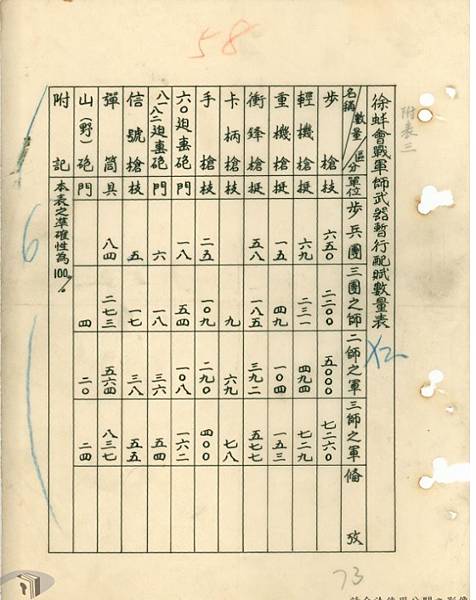 58
附表三
徐蚌會戰軍師武器暫行配賦數量表
名稱 數量 區分 單位 步兵團 三團之師 二師之軍 三師之軍 備攷
步槍 枝 六五〇 二二〇〇 五〇〇〇 七二六〇
輕機槍 挺 六九 二三一 四九四 七二九
重機槍 挺 一五 四九 一〇四 一五三
衝鋒槍 挺 五八 一八五 三九二 五七七
卡柄槍 枝 九 六九 七八
手槍 枝 二五 一〇九 二九〇 四〇〇
六〇迫擊砲 門 一八 五四 一〇八 一六二
八一八二迫擊砲 門 六 一八 三六 五四
信號槍 枝 五 一七 三八 五五
彈筒 具 八四 二七三 五六四 八三七
山(野)砲 門 四 二〇 二四
附記 本表之準確性為100%
6
X2
73